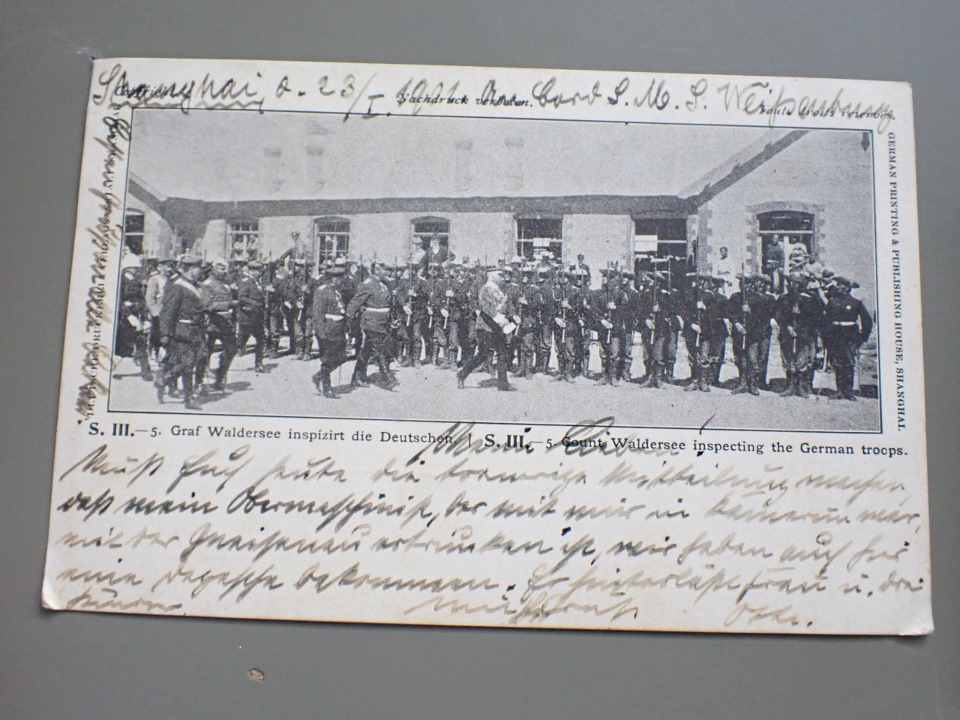 Shanghai, d. 23/I. 1901 An Bord S. M. S. Weißenburg
Nachdruck verboten.
GERMAN PRINTING & PUBLISHING HOUSE, SHANGHAI.
S. III.—5. Graf Waldersee inspizirt die Deutschen. | S. III.—5 Count Waldersee inspecting the German troops.
Meine Lieben!
Muß Euch heute die traurige Mitteilung machen,
daß mein Obermaschinist, der mit mir in Kamerun war,
mit der Gneisenau ertrunken ist, wir haben auch hier
eine Depesche bekommen. Er hinterläßt Frau u. drei
Kinder. Otto.